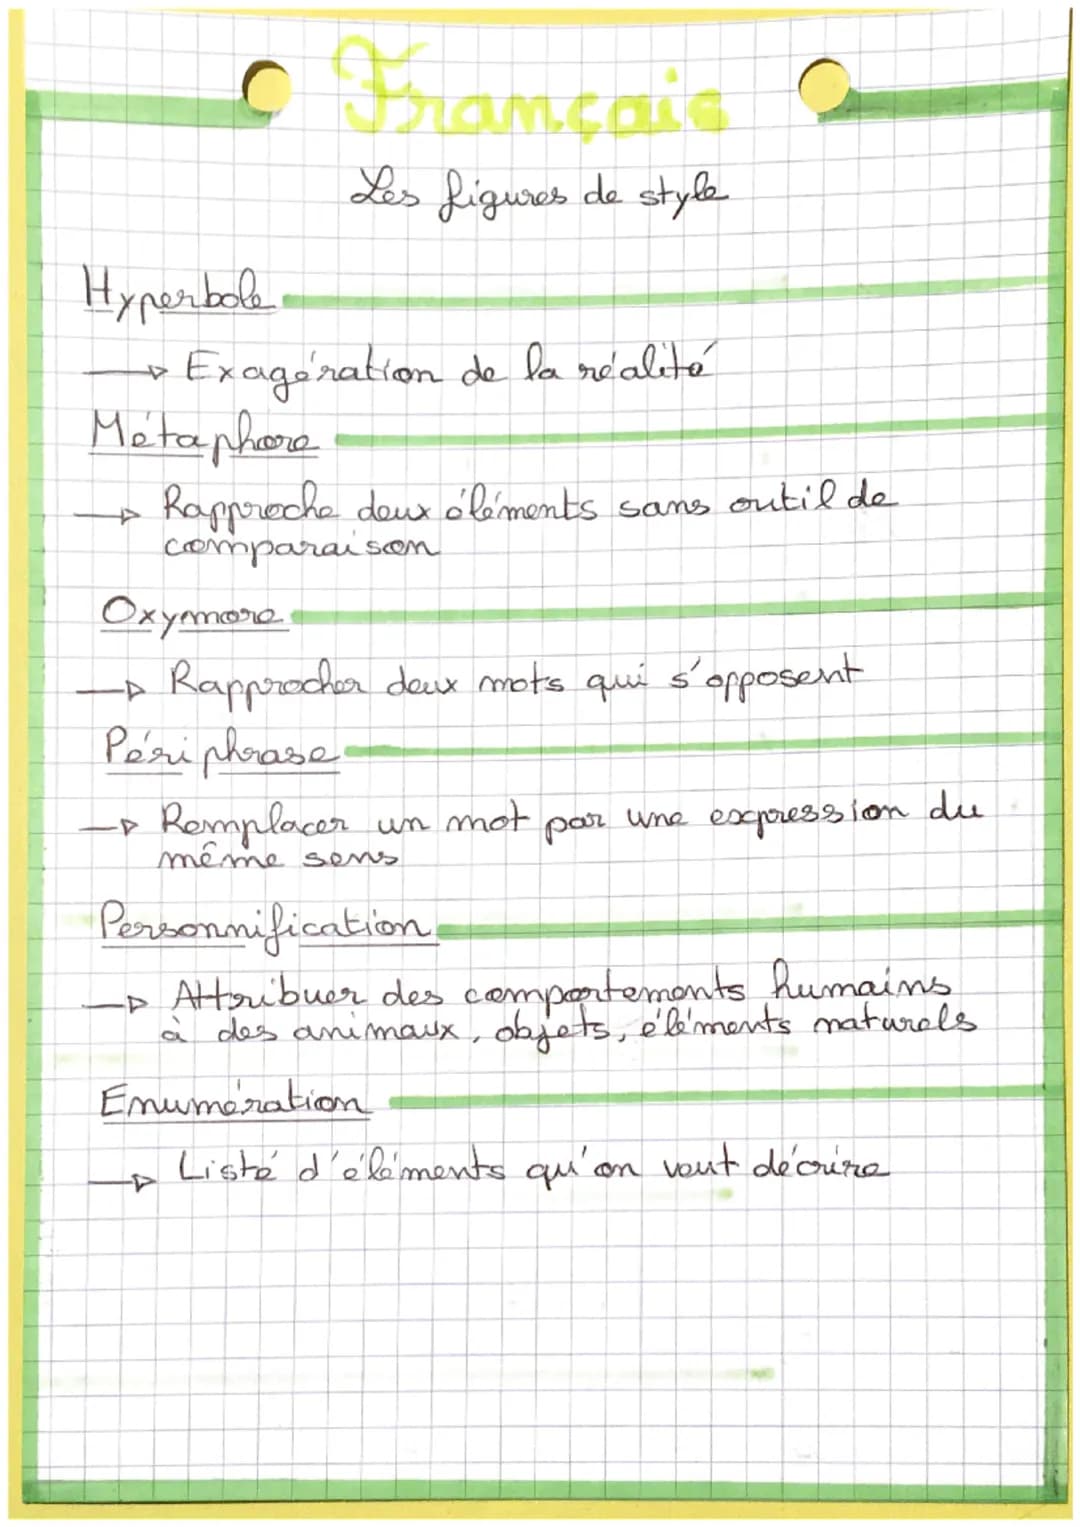 Français
Les figures de style
Hyperbole
→ Exagération de la réalité
Métaphore
→ Rapproche deux éléments sans outil de
comparaison
Oxymore
→ Rapprocher deux mots qui s'opposent
Périphrase
→ Remplacer un mot par une expression du
même sens
Personnification
→ Attribuer des comportements humains
à des animaux, objets, éléments naturels
Enumération
→ Listé d'éléments qu'on veut décrire